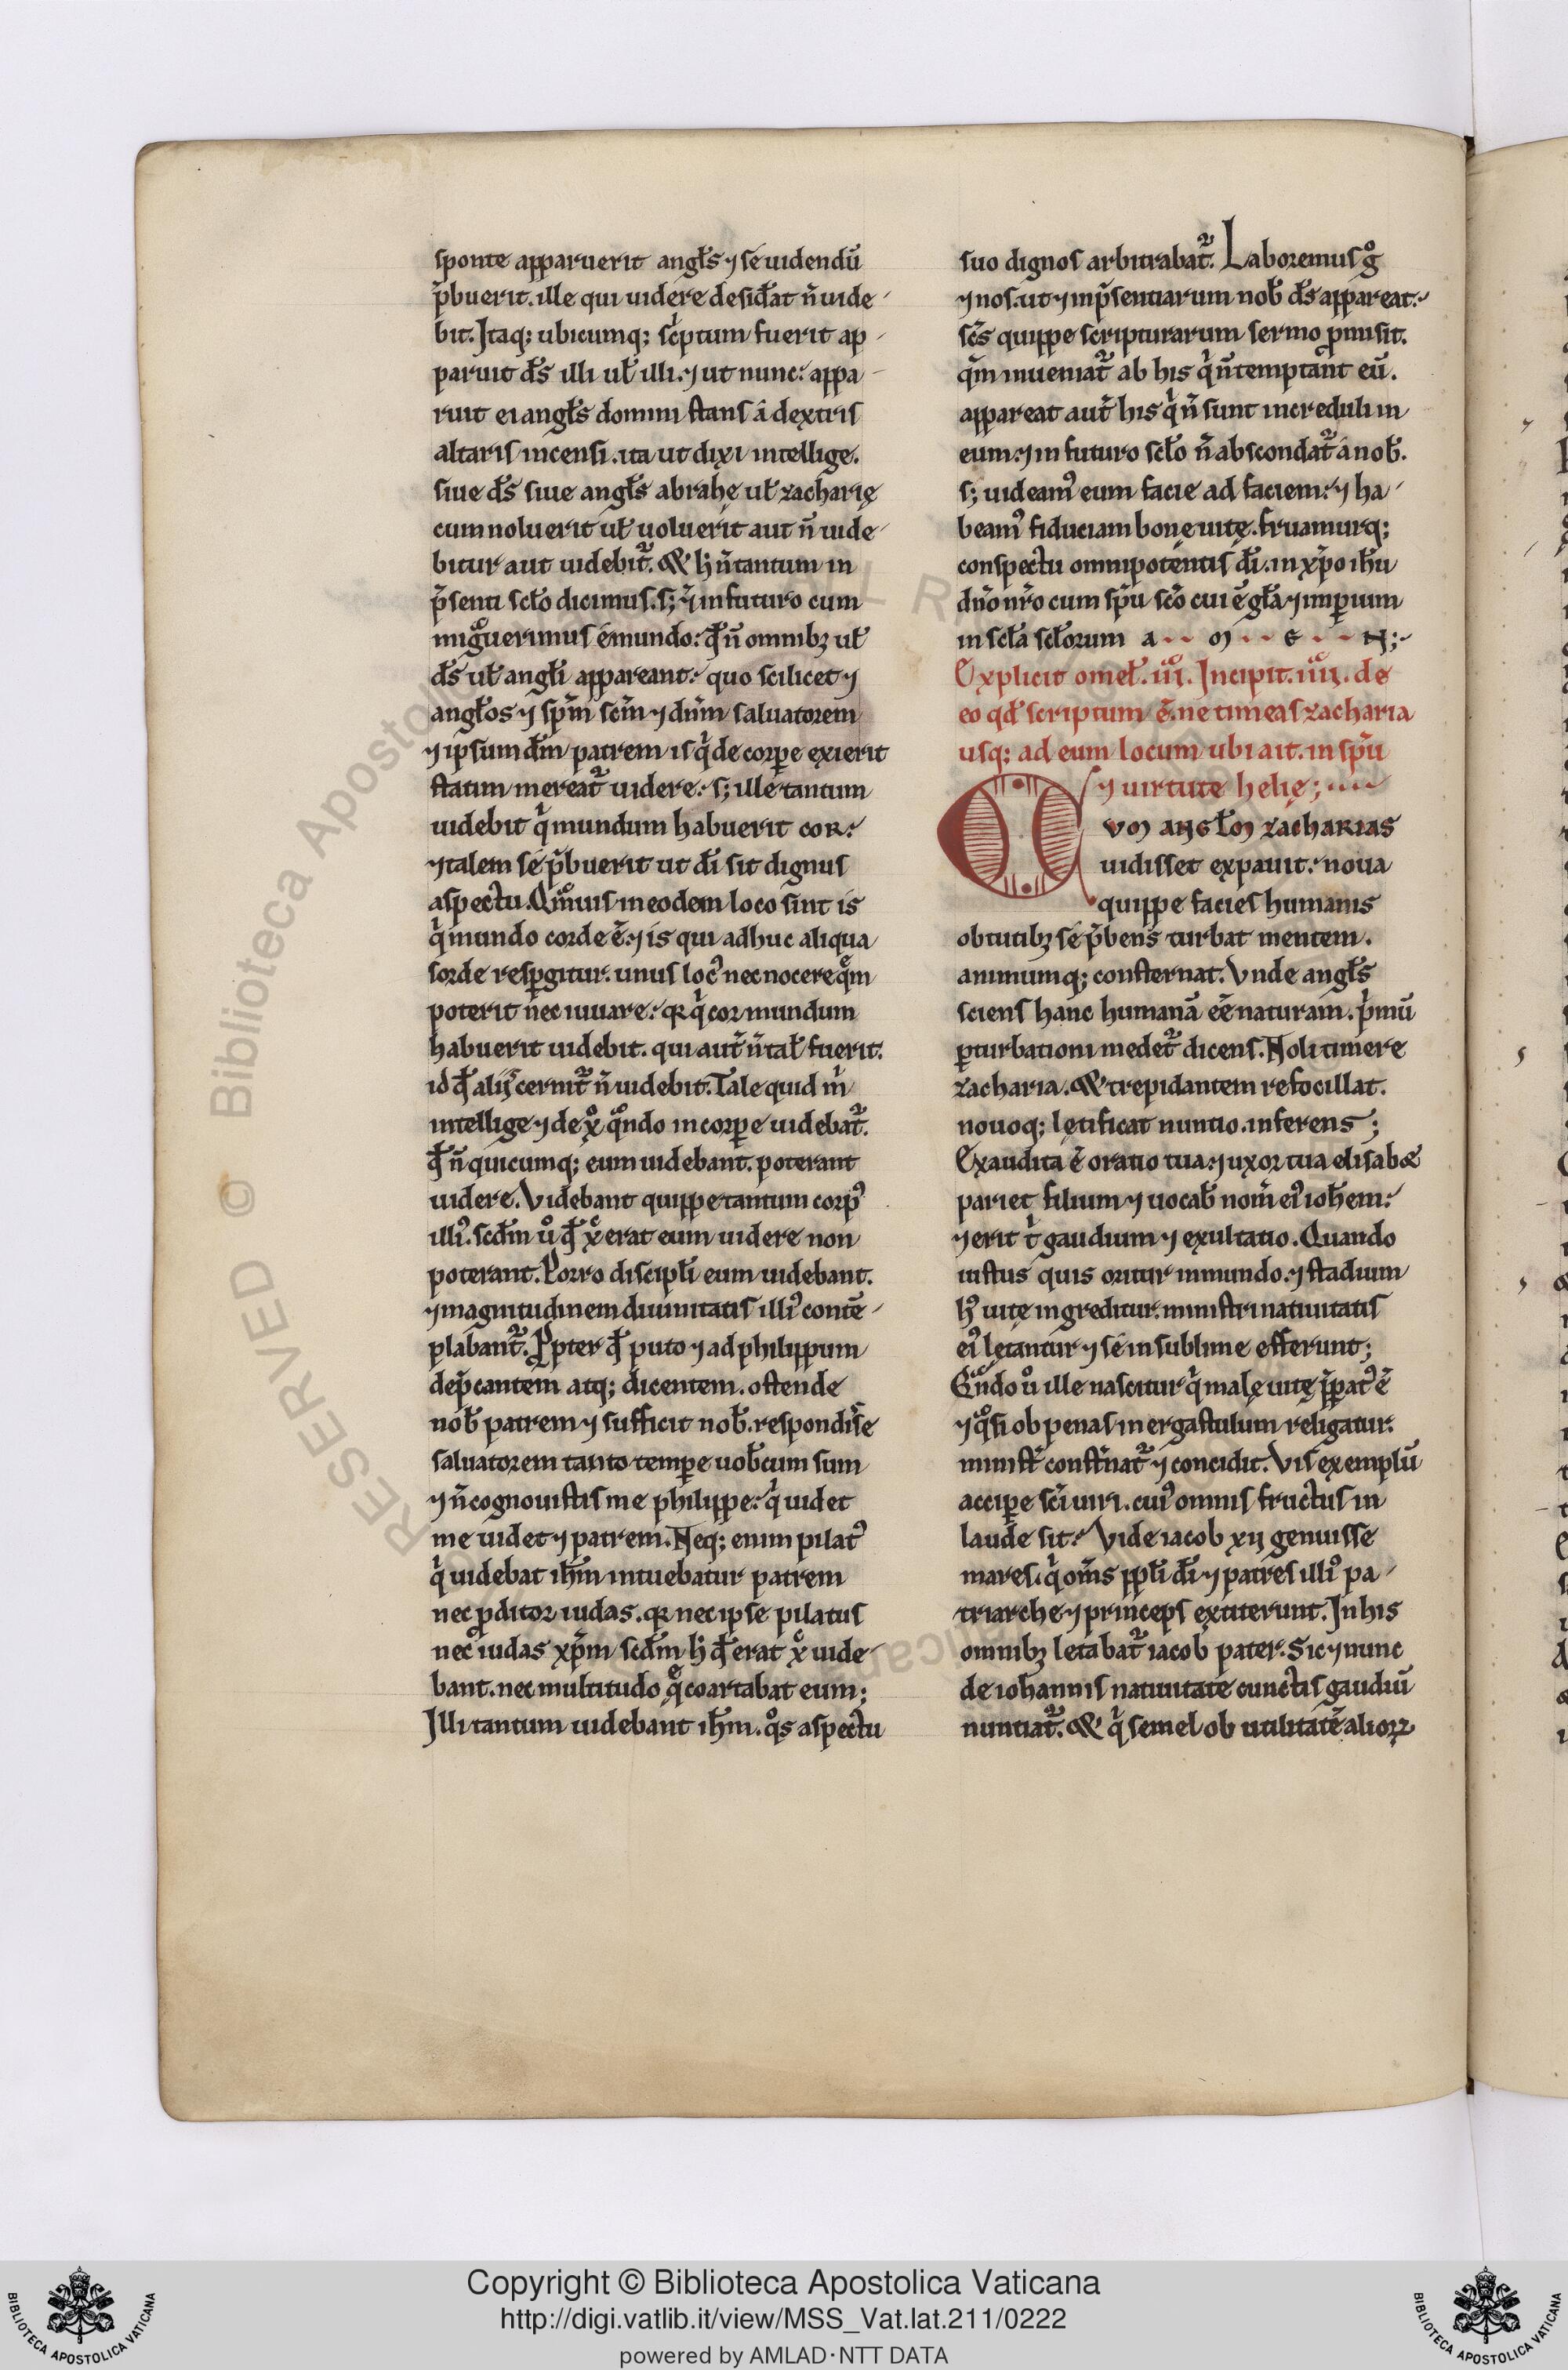 sponte apparuerit angl̄s ⁊ se uidendū
p̄buerit. ille qui uidere desid̄at n̄ uide
bit. Itaq; ubicumq; sc̄ptum fuerit ap
paruit d̄s illi ul̄ illi. ⁊ ut nunc. appa
ruit ei angl̄s domini stans a dextris
altaris incensi. ita ut dixi intellige.
siue d̄s siue angl̄s abrahę ul̄ zacharię
cum noluerit ul̄ uoluerit aut n̄ uide
bitur aut uidebit̄. & h̄ n̄ tantum in
p̄senti scl̄o dicimus. s; ⁊ in futuro cum
mig̊uerimus e mundo. qđ n̄ omnibꝫ ul̄
d̄s ul̄ angl̄i appareant. quo scilicet ⁊
angl̄os ⁊ sp̄m sc̄m ⁊ dn̄m saluatorem
⁊ ipsum d̄m patrem is q̄ de corpe exierit
statim mereat̄ uidere. s; ille tantum
uidebit q̄ mundum habuerit cor.
⁊ talem se p̄buerit ut d̄i sit dignus
aspectu. Qm̄uis in eodem loco sint is
q̄ mundo corde ē. ⁊ is qui adhuc aliqua
sorde respgitur. unus loc᾿ nec nocere qm̄
poterit nec iuuare. qꝛ q̄ cor mundum
habuerit uidebit. qui aut̄ n̄ tal̄ fuerit.
id qđ alii cernit̄ n̄ uidebit. Tale quid m̄
intellige ⁊ de x̊ qn̊do in corpe uidebat̄.
qđ n̄ quicumq; eum uidebant. poterant
uidere. Videbant quippe tantum corp᾿
illi᾿. scd̄m ů qđ x̄ erat eum uidere non
poterant. Porro discipl̄i eum uidebant.
⁊ magnitudinem diuinitatis illi᾿ contē
plabant̄. Ppter qđ puto ⁊ ad philippum
dep̄cantem atq; dicentem. ostende
nob̄ patrem ⁊ sufficit nob̄. respondis̄e
saluatorem tanto tempe uob̄cum sum
⁊ n̄ cognouistis me philippe. q̄ uidet
me uidet ⁊ patrem. Neq; enim pilat᾿
q̄ uidebat ih̄m intuebatur patrem
nec pditor iudas. qꝛ nec ipse pilatus
nec iudas xp̄m scd̄m h̄ qđ erat x̄ uide
bant. nec multitudo q̄ coartabat eum;
Illi tantum uidebant ih̄m. q̊s aspectu
suo dignos arbitrabat̄. Laboremus g̊
⁊ nos. ut ⁊ inp̄sentiarum nob̄ d̄s appareat.
sc̄s quippe scripturarum sermo pmisit.
qm̄ inueniat̄ ab his q̄ n̄ temptant eū.
appareat aut̄ his q̄ n̄ sunt increduli in
eum. ⁊ in futuro scl̄o n̄ abscondat̄ a nob̄.
s; uideam᾿ eum facie ad faciem. ⁊ ha
beam᾿ fiduciam bonę uitę. fruamurq;
conspectu omnipotentis d̄i. in xp̄o ih̄u
dn̄o nr̄o cum sp̄u sc̄o cui ē gl̄a ⁊ imperium
in scl̄a scl̄orum a .. m .. e .. N;
Explicit omel̄. iii. Incipit. iiii. de
eo qđ scriptum ē. ne timeas zacharia
usq; ad eum locum ubi ait. in sp̄u
⁊ uirtute helię;
CVM ANGL̄M ZACHARIAS
uidisset expauit. noua
quippe facies humanis
obtutibꝫ se p̄bens turbat mentem.
animumq; consternat. Vnde angl̄s
sciens hanc humanā eē naturam. p̄mū
pturbationi medet̄ dicens. Noli timere
zacharia. & trepidantem refocillat.
nouoq; lętificat nuntio. inferens;
Exaudita ē oratio tua. ⁊ uxor tua elisab&
pariet filium ⁊ uocab̄ nom̄ ei᾿ ioh̄em.
⁊ erit t̄ gaudium ⁊ exultatio. Quando
iustus quis oritur in mundo. ⁊ stadium
h᾿ uitę ingreditur. ministri natiuitatis
ei᾿ lętantur ⁊ se in sublime efferunt;
Qn̊do ů ille nascitur q̄ malę uitę p̄pat᾿ ē
⁊ q̊si ob penas in ergastulum religatur.
minist̄ const̄nat̄ ⁊ concidit. Vis exemplū
accipe sc̄i uiri. cui᾿ omnis fructus in
laude sit. Vide iacob xii genuisse
mares. q̄ om̄s ppl̄i d̄i ⁊ patres illi᾿ pa
triarche ⁊ princeps extiterunt. In his
omnibꝫ letabat̄ iacob pater. Sic ⁊ nunc
de iohannis natiuitate cunctis gaudiū
nuntiat̄. & q̄ semel ob utilitatē alioꝝ
Copyright © Biblioteca Apostolica Vaticana
http://digi.vatlib.it/view/MSS_Vat.lat.211/0222
powered by AMLAD·NTT DATA
BIBLIOTECA APOSTOLICA VATICANA
BIBLIOTECA APOSTOLICA VATICANA